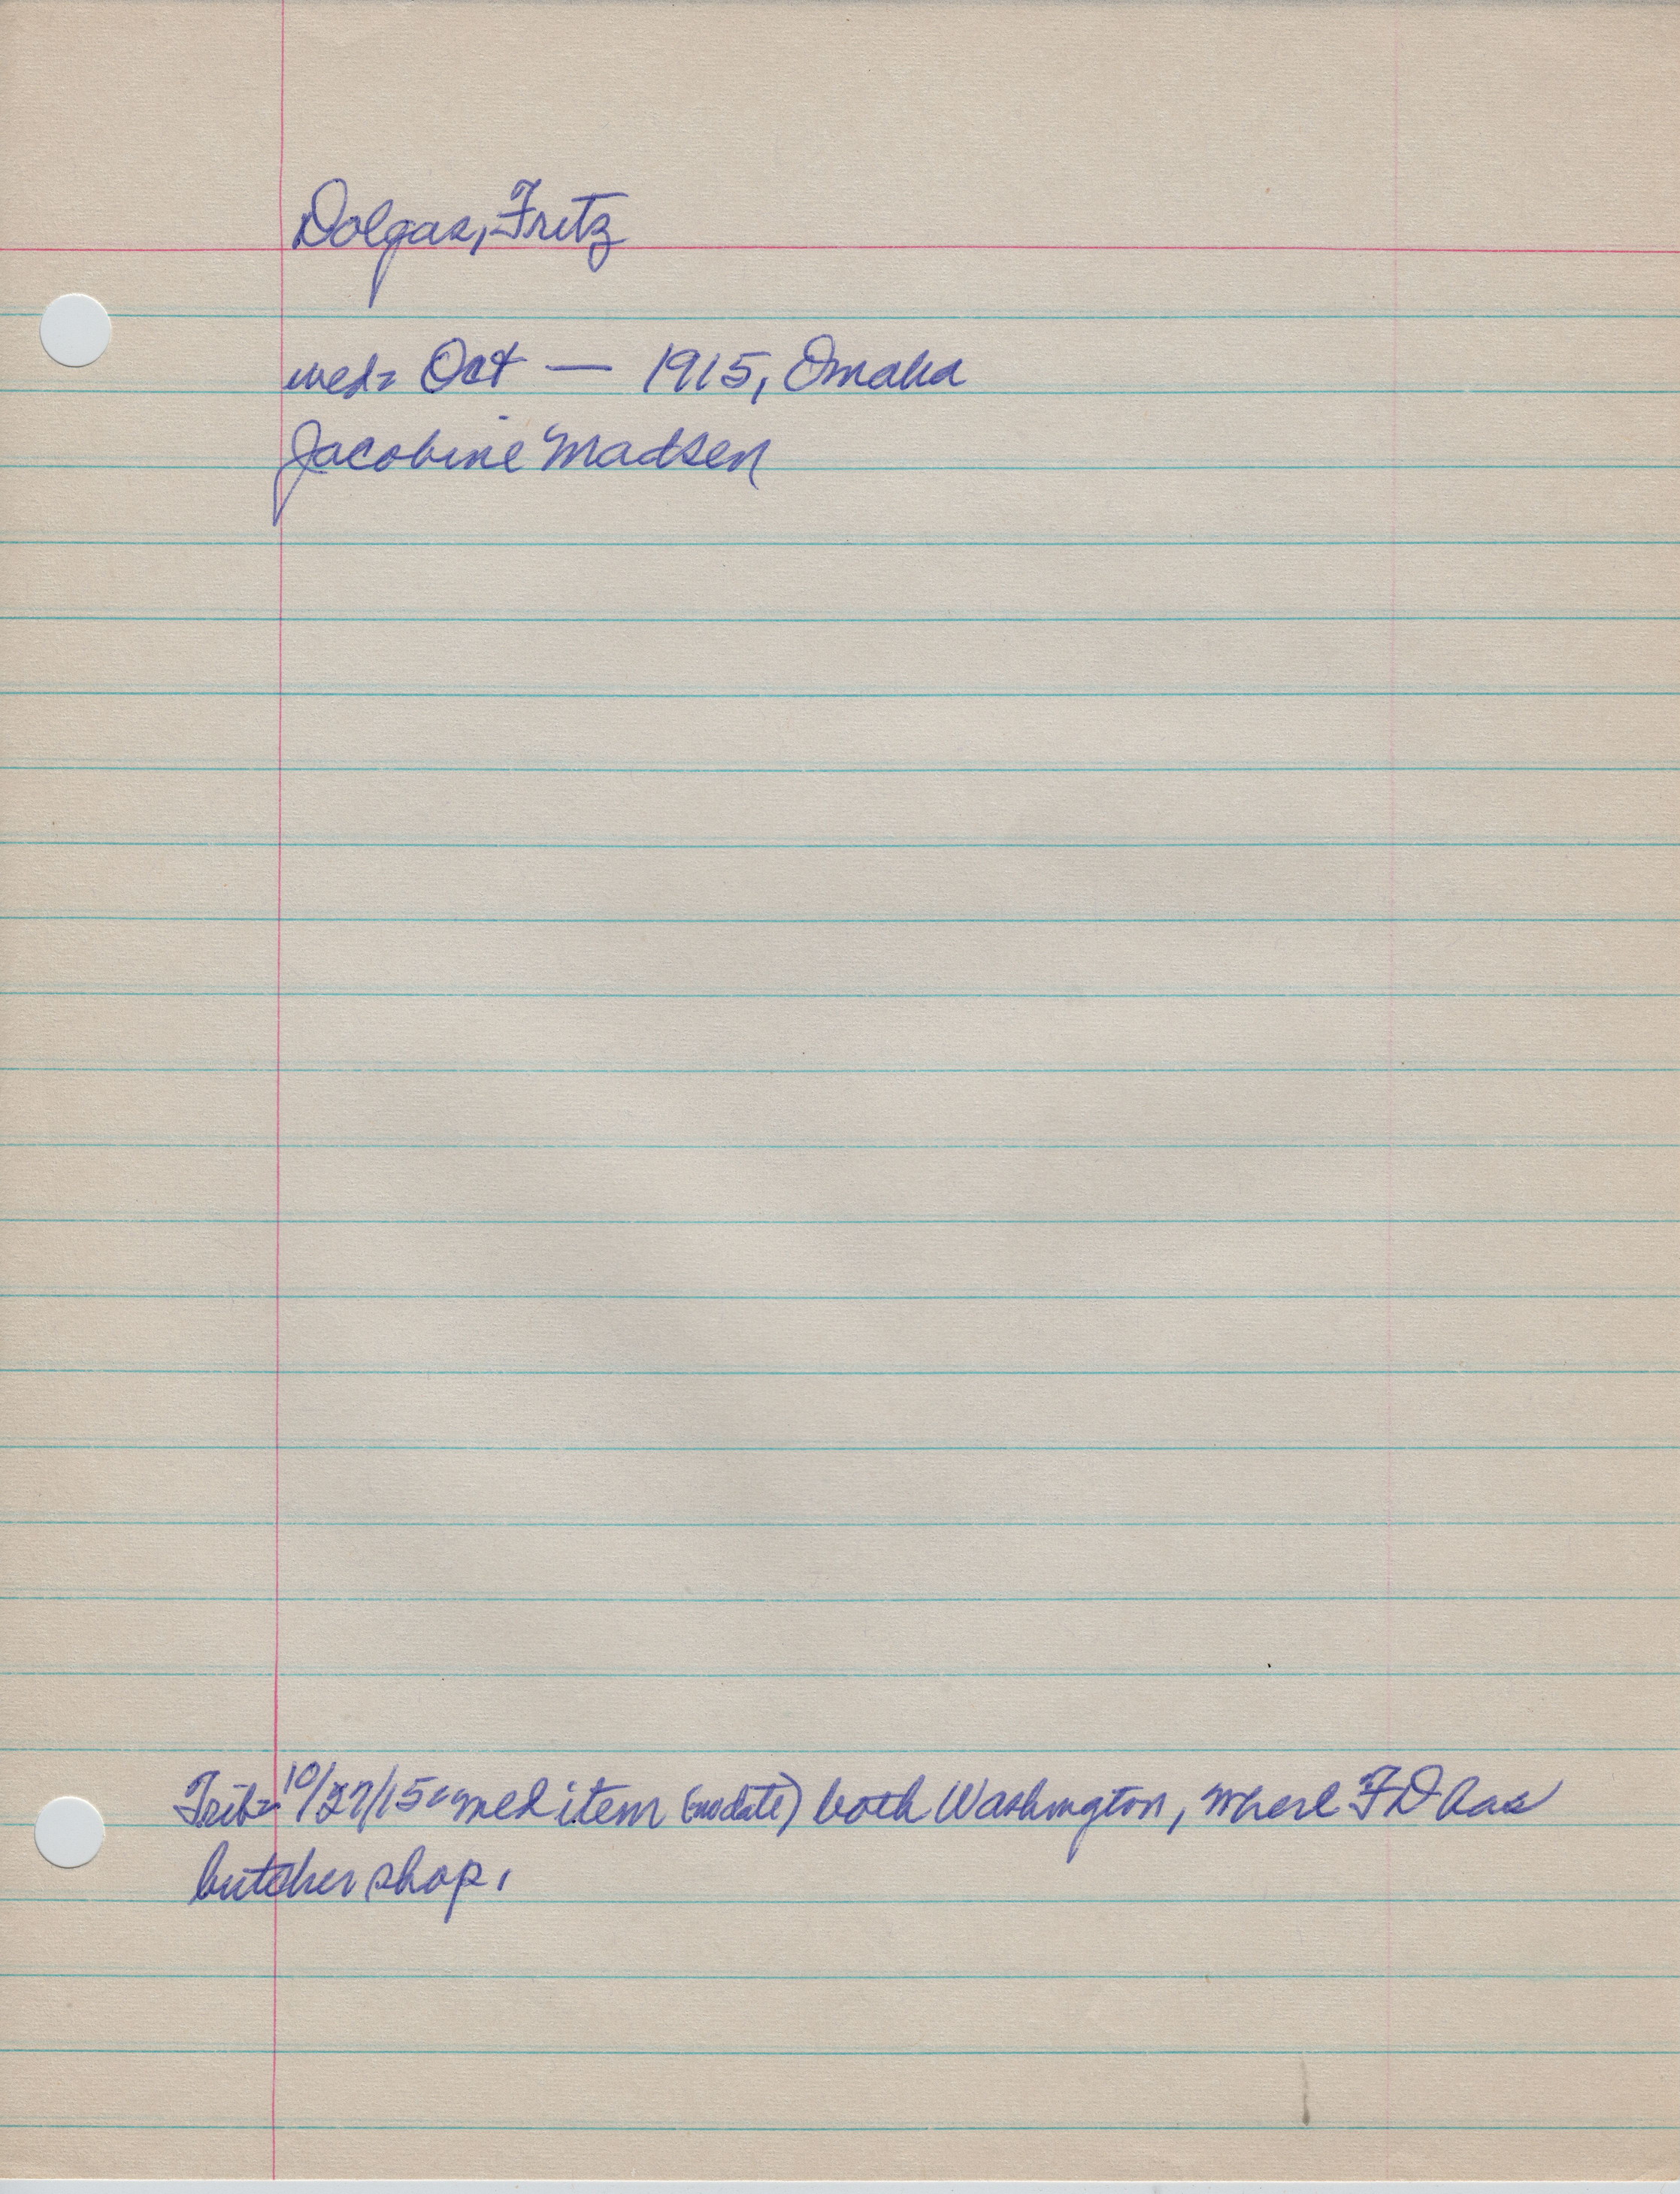 Dolgas, Fritz
wed= Oct — 1915, Omaha
Jacobine Madsen
Trib= 10/27/15= wed item (no date) both Washington, where FD has
butcher shop.